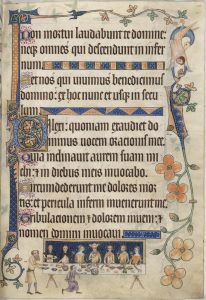 Non mortui laudabunt te domine:
neq; omnes qui descendunt in infer
num
Set nos qui uiuimus benedicimus
domino: ex hoc nunc et usq; in secu
lum
Dilexi: quoniam exaudiet do
minus uocem oracionis mee
Quia inclinauit aurem suam mi
chi: et in diebus meis inuocabo
Circumdederunt me dolores mor
tis: et pericula inferni inuenerunt me
Tribulacionem et dolorem inueni: et
nomen domini inuocaui